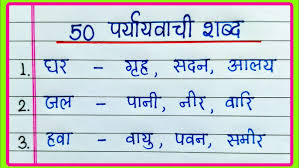 50 पर्यायवाची शब्द
1. घर - गृह, सदन, आलय
2. जल - पानी, नीर, वारि
3. हवा - वायु, पवन, समीर